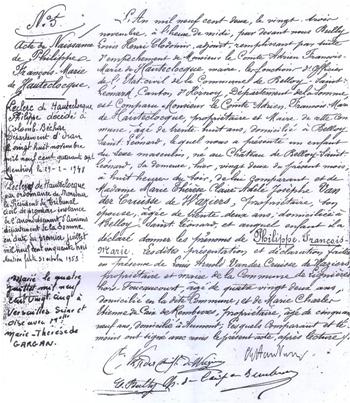 N° 5
Acte de Naissance
de Philippe
François-Marie
de Hauteclocque
Leclerc de Hauteclocque
Philippe décédé à
Colomb-Béchar
Département d'Oran
le vingt huit novembre
mil neuf cent quarante sept
mention le 19-2-1948
Leclerc de Hauteclocque
par ordonnance de Monsieur
le Président du Tribunal
civil de première instance
de l'arrondissement d'Amiens
département de la Somme
en date du premier juillet
mil neuf cent cinquante trois
Marié le quatre
juillet mil neuf
cent vingt cinq à
Versailles Seine et
Oise avec
Marie-Thérèse de
GARGAN.
L'An mil neuf cent deux, le vingt trois
novembre, à l'heure de midi, par devant nous Brailly
Louis Henri Clodomir, adjoint, remplissant par suite
d'empêchement de Monsieur le Comte Adrien François-
Marie de Hauteclocque maire, les fonctions d'officier
de l'Etat civil de la Commune de Belloy-Saint-
Léonard, Canton d'Hornoy, Département de la Somme,
est comparu Monsieur le Comte Adrien, François Marie
de Hauteclocque, propriétaire et Maire de cette Com-
mune, âgé de trente huit ans, domicilié à Belloy
Saint Léonard, lequel nous a présenté un enfant
du sexe masculin, né au Château de Belloy-Saint-
Léonard, sa demeure, hier vingt deux à présent mois
à huit heures du soir, de lui comparant et de
Madame Marie Thérèse Claire Adèle Joséphe Van
der Cruisse de Waziers, propriétaire, son
épouse, âgée de trente deux ans, domiciliée à
Belloy Saint Léonard, et auquel enfant il a
déclaré donner les prénoms de Philippe François
Marie. Lesdites présentation et déclaration faites
en présence de Van der Cruisse de Waziers
propriétaire et maire de la Commune de Lignières
hors Foucaucourt, âgé de quatre vingt deux ans,
domicilié en la dite Commune; et de Marie Charles
Etienne de Caix de Rembures, propriétaire, âgé de cinquante
neuf ans, domicilié à Aumont, lesquels comparant et té-
moins ont signé avec nous le présent acte, après lecture.